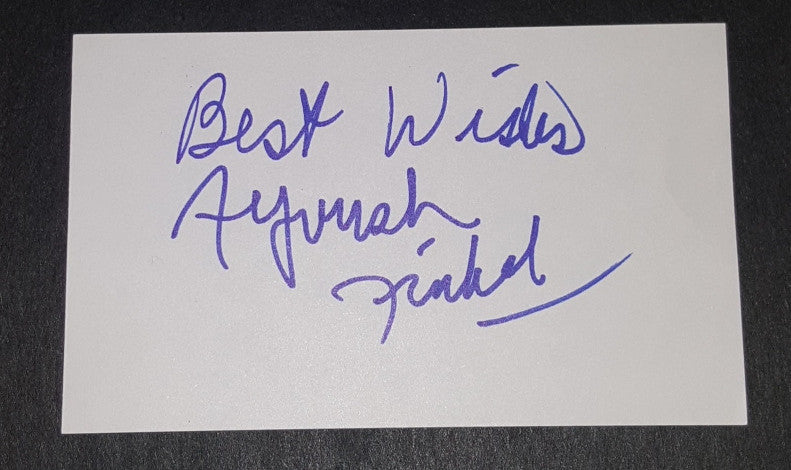 Best Wishes
Fyvush
Finkel